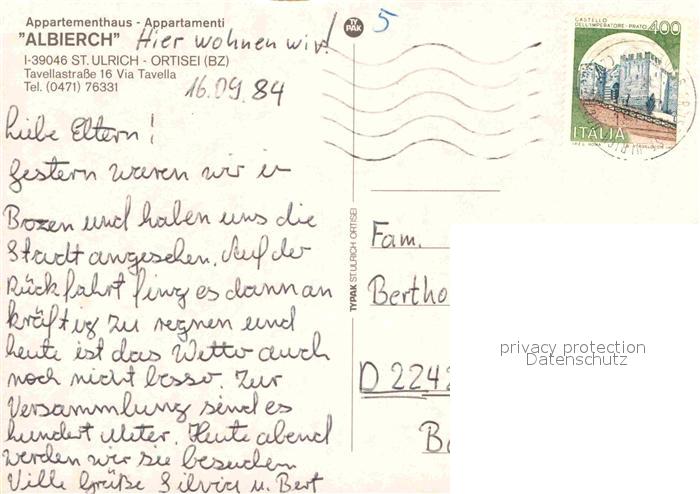 Appartementhaus - Appartamenti
"ALBIERCH" Hier wohnen wir!
I-39046 ST. ULRICH - ORTISEI (BZ)
Tavellastraße 16 Via Tavella
Tel. (0471) 76331
16.09.84
Liebe Eltern!
Gestern waren wir in
Bozen und haben uns die
Stadt angesehen. Auf der
Rückfahrt fing es dann an
kräftig zu regnen und
heute ist das Wetter auch
noch nicht besser. Zur
Versammlung sind es
hundert Meter. Heute abend
werden wir sie besuchen
Ville Grüße Silvia u. Bert
TYPAK
TYPAK ST. ULRICH ORTISEI
5
CASTELLO
DELL'IMPERATORE - PRATO
400
ITALIA
Fam.
Bertho
D 2242
B
privacy protection
Datenschutz